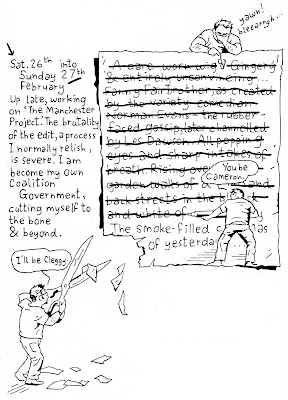 yawn!
bleearrgh...
Sat. 26th into
Sunday 27th
February
Up late, working
on 'The Manchester
Project'. The brutality
of the edit, a process
I normally relish,
is severe. I am
become my own
Coalition
Government,
cutting myself to
the bone
& beyond.
A care-worn wig Gingery
& entirely unconvincing...
Fanny Fairbrother, as created
by the variety comedian
Norman Evans - the rubber-
faced gossip, later channelled
by Les Dawson. All popping
eyes and sharp intakes of
breath. Rising over
garden walls of a and
back streets in the
and white of
The smoke-filled
of yesterda
You be
Cameron.
I'll be Clegg.